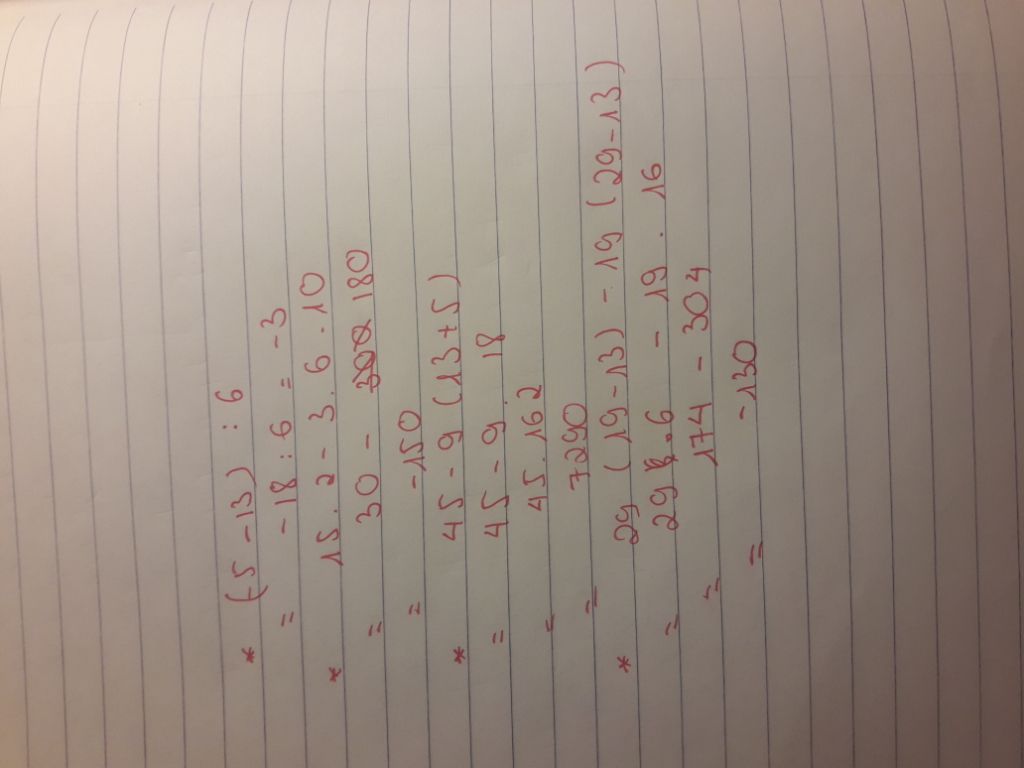 * (-5 -13) : 6
= -18 : 6 = -3
* 15 . 2 - 3 . 6 . 10
= 30 - 300 180
= -150
* 45 - 9 (13 + 5)
= 45 - 9 . 18
= 45 . 162
= 7290
* 29 (19 - 13) - 19 (29 - 13)
= 29 . 6 - 19 . 16
= 174 - 304
= -130